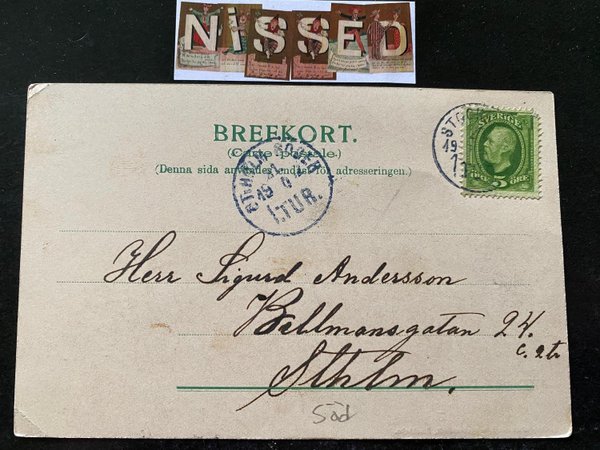 NiSSED
BREFKORT.
(Carte postale.)
(Denna sida användes endast för adresseringen.)
SVERIGE
5 ÖRE
1.TUR.
Herr Sigurd Andersson
Bellmansgatan 24.
Sthlm.
Söd